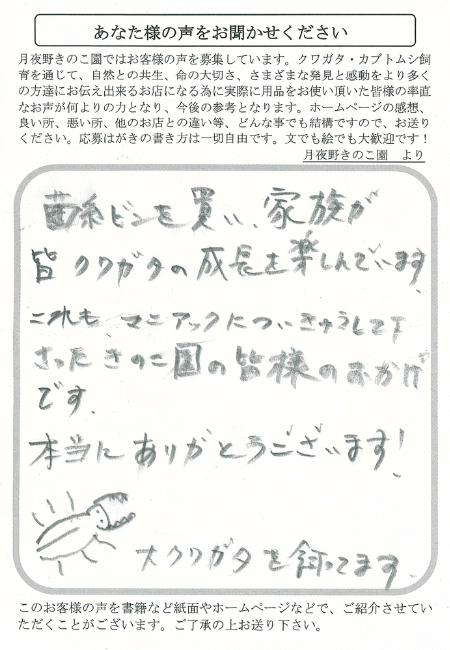 あなた様の声をお聞かせください
月夜野きのこ園ではお客様の声を募集しています。クワガタ・カブトムシ飼
育を通じて、自然との共生、命の大切さ、さまざまな発見と感動をより多く
の方達にお伝え出来るお店になる為に実際に用品をお使い頂いた皆様の率直
なお声が何よりの力となり、今後の参考となります。ホームページの感想、
良い所、悪い所、他のお店との違い等、どんな事でも結構ですので、お送り
ください。応募はがきの書き方は一切自由です。文でも絵でも大歓迎です！
月夜野きのこ園　より
菌糸ビンを買い、家族が
皆クワガタの成長を楽しんでいます
これも、マニアックについきゅうして下
さったきのこ園の皆様のおかげ
です。
本当にありがとうございます！
大クワガタを飼ってます。
このお客様の声を書籍など紙面やホームページなどで、ご紹介させてい
ただくことがございます。ご了承の上お送り下さい。